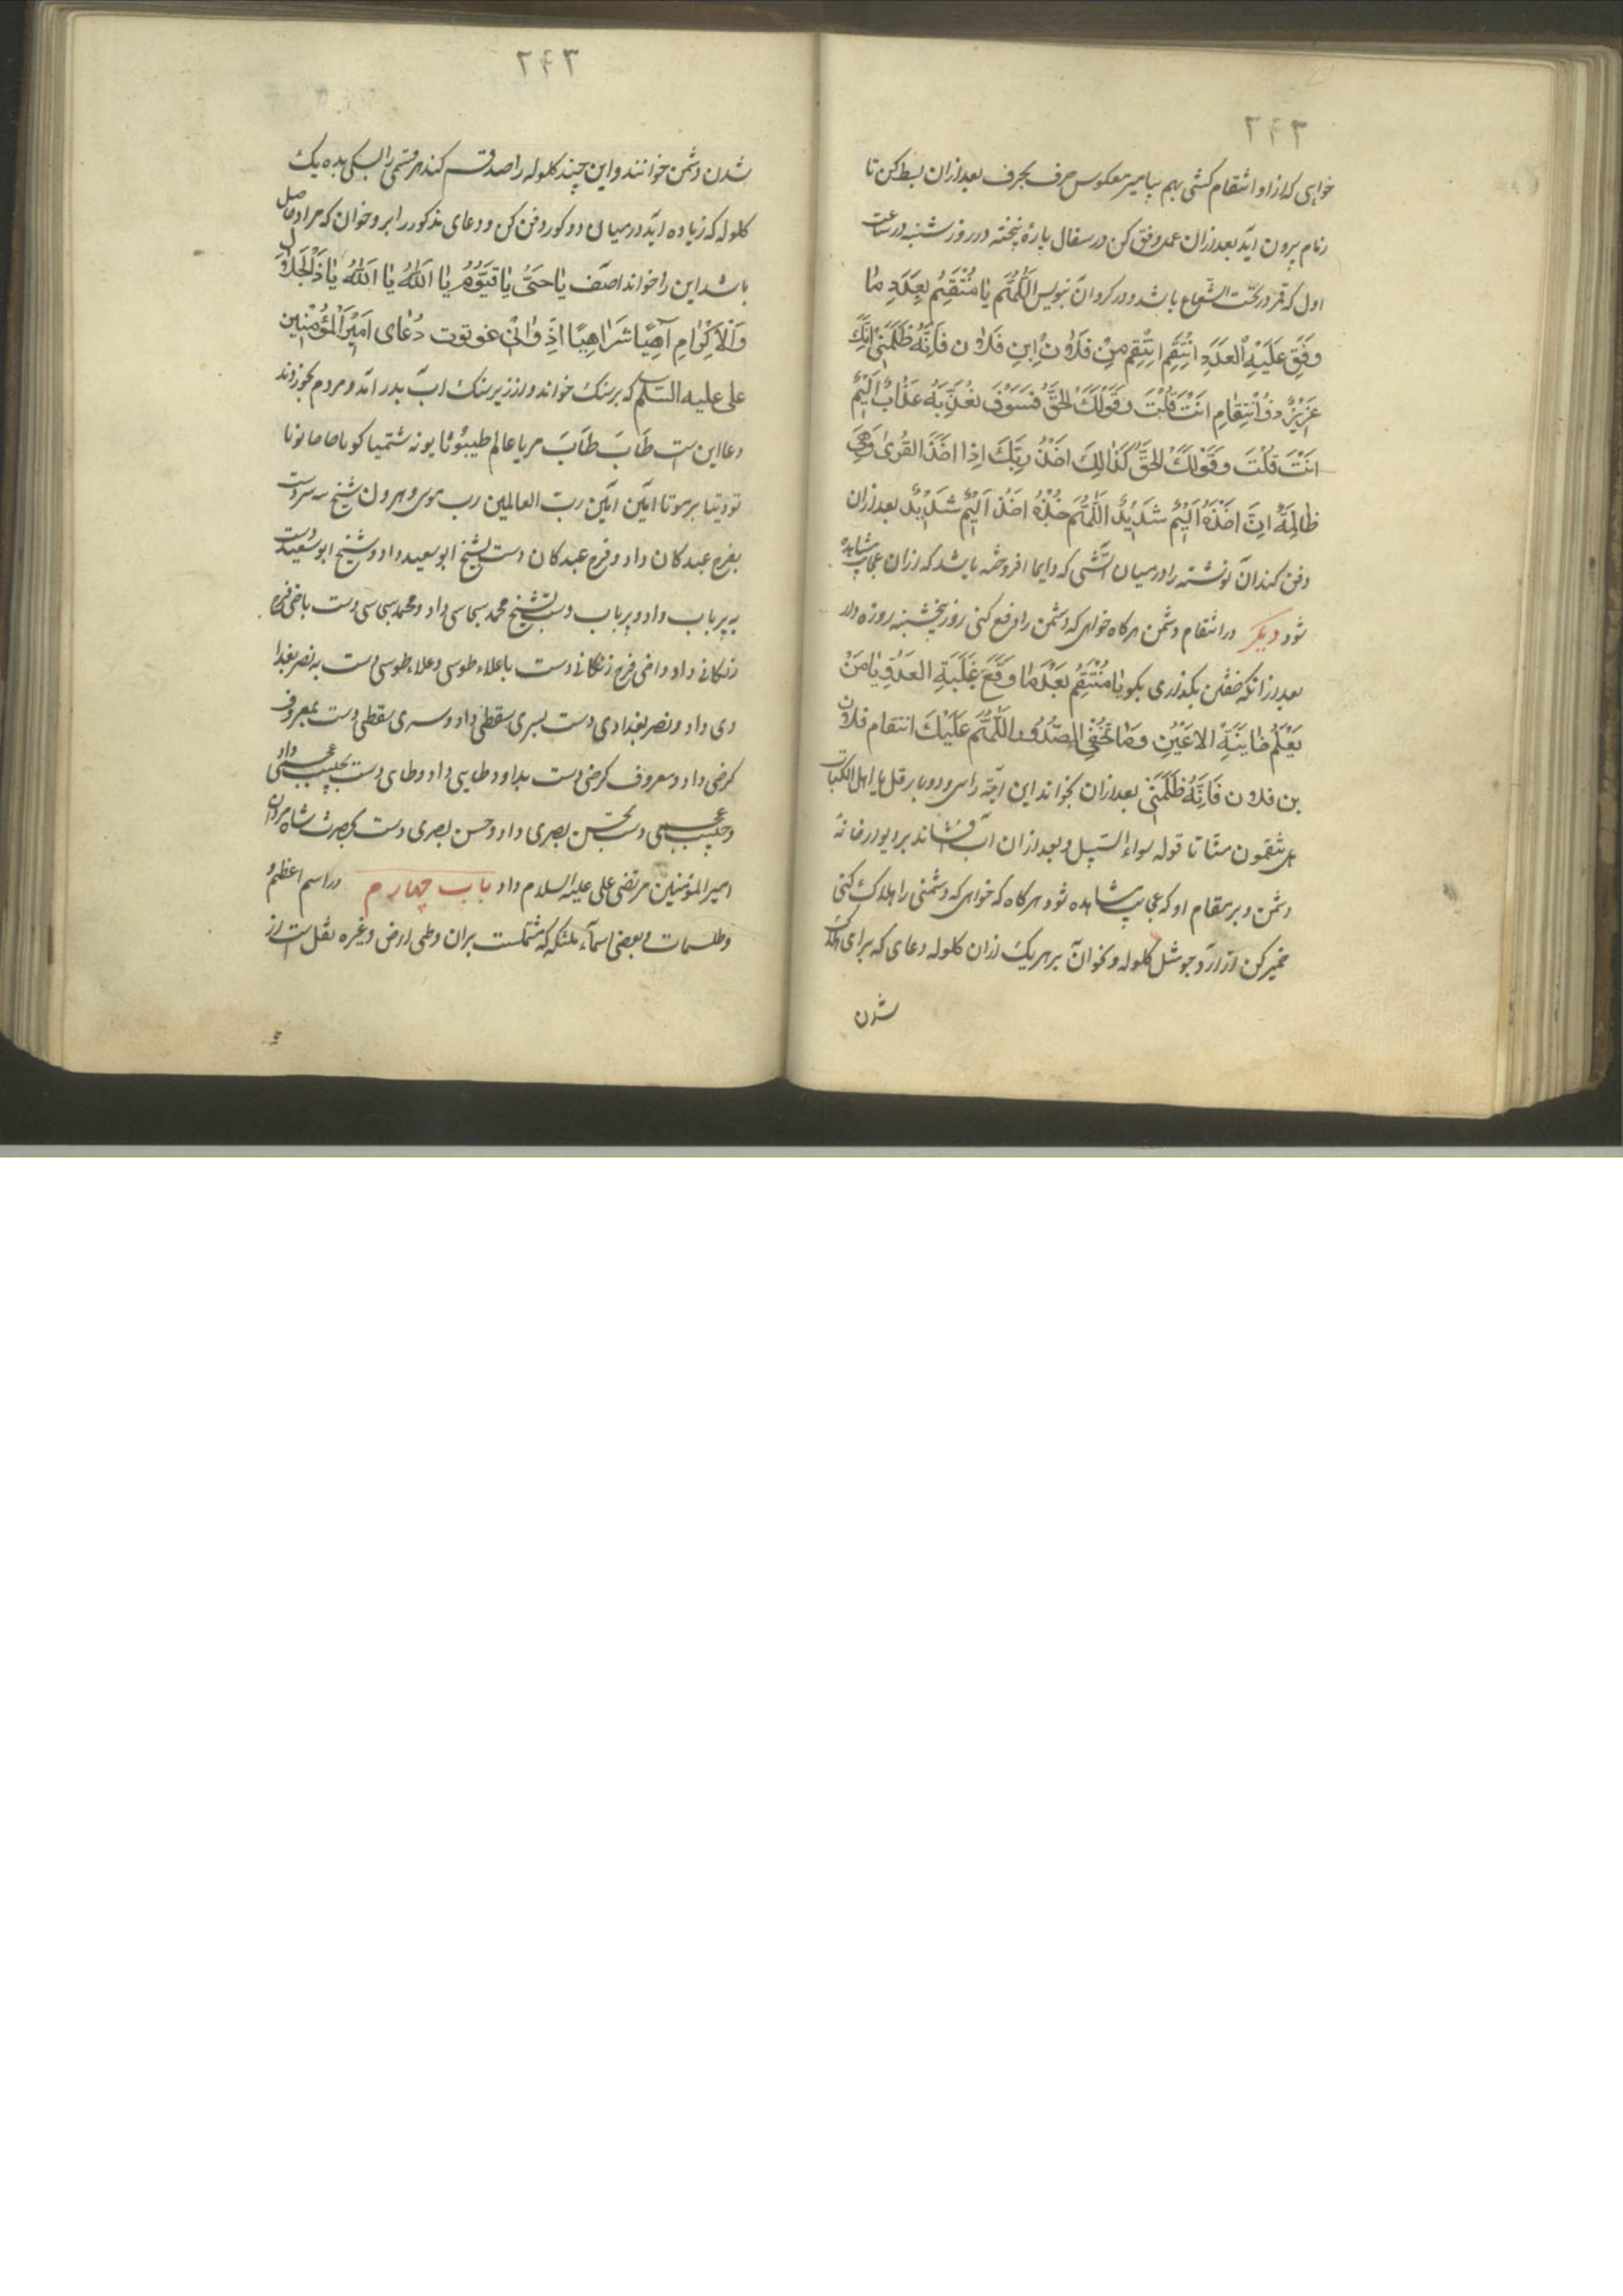 ۲۴۲
خواهی که از او انتقام کشی بهم بیامیز معکوس حرف بحرف بعد ازان بسط کن تا
نام بیرون آید بعد ازان عمل وفق کن در سفال پارهٔ پخته در روز شنبه در ساعت
اول که قمر در تحت الشعاع باشد و در کرد آن بنویس اَللّٰهُمَّ یٰا مُنْتَقِمُ بِعَدَدِ مٰا
وَفَقَ عَلَیْهِ الْعَدَدِ اِنْتَقِمْ اِنْتَقِمْ مِنْ فَلٰان اِبْنِ فَلٰان فَاِنَّهُ ظَلَمَنی اِنَّکَ
عَزیزٌ ذُو اْنْتِقٰامِ اَنْتَ قُلْتَ وَقَوْلُکَ الحَقُّ فَسَوْفَ نُعَذِّبَهُ عَذٰابٌ اَلیمٌ
اَنْتَ قُلْتَ وَقَوْلُکَ الحَقُّ کَذٰالِکَ اَخْذُ رَبِّکَ اِذٰا اَخَذَ القُریٰ وَهِیَ
ظٰالِمَةٌ اِنَّ اَخْذَهُ اَلیمٌ شَدیدٌ اَللّٰهُمَّ خُذْهُ اَخْذُ اَلیمٌ شَدیدٌ بعد ازان
دفن کند آن نوشته را در میان آتشی که دایما افروخته باشد که ازان عجایب مشاهده
شود دیکر در انتقام دشمن هر کاه خواهی که دشمن را دفع کنی روز پنجشنبه روزه دار
بعد از آنکه خفتن بکذاری بکو یٰا مُنْتَقِمُ بَعْدَ مٰا وَقَعَ غَلَبَةِ العَدُوِّ یٰا مَنْ
یَعْلَمُ خٰایِنَةِ الاعَیْنِ وَمٰا تُخْفِی الصُّدُور اَللّٰهُمَّ عَلَیْکَ انتقام فلان
بن فلان فَاِنَّهُ ظَلَمَنی بعد ازان بخواند این آیة را سی و دو بار قل یا اهل الکتاب
هل تنقمون منّا تا قوله سواء السّبیل و بعد ازان آب افشاند بر دیوار خانهٔ
دشمن و بر مقام او که عجایب مشاهده شود هر کاه که خواهی که دشمنی را هلاک کنی
خمیر کن از آرد جو شل کلوله و بخوان بر هر یک ازان کلوله دعای که برای هلاک
شدن
۲۴۳
شدن دشمن خوانند و این چند کلوله را صد قسم کند هر قسمی را بسکی بده یک
کلوله که زیاده آید در میان دو کور دفن کن و دعای مذکور را برو خوان که مراد حاصل
باشد این را خواند اصف یٰا حَیُّ یٰا قَیُّوُمُ یٰا اَللّٰهُ یٰا اَللّٰهُ یٰا ذَالْجَلٰالِ
وَالْاِکْرٰامِ آهِیًّا شَرٰاهِیًّا اذِ وٰانی غو توت دُعٰای اَمیرَالْمُؤْمِنین
علی علیه السّلم که بر سنک خواند و از زیر سنک آب بدر آمد و مردم بخوردند
دعا این ست طٰابَ طٰابَ مریا عالم طیبوُثا یونه شتمیا کو یاحاما نوثا
تودیثا برموتا آمین آمین ربّ العالمین رب موسی و هرون شیخ سه سر دست
بفرخ عبدکان داد و فرخ عبدکان دست بشیخ ابو سعید داد و شیخ ابو سعید دست
به پیر باب داد و پیر باب دست بشیخ محمد سجاسی داد و محمد سجاسی دست باخی فرج
زنکانی داد و اخی فرج زنکانی دست باعلاء طوسی و علاء طوسی دست به نصر بغدا
دی داد و نصر بغدادی دست بسری سقطی داد و سری سقطی دست بمعروف
کرخی داد و معروف کرخی دست بداود طایی داد و طای دست بحبیب عجمی داد
و حبیب عجمی دست بحسن بصری داد و حسن بصری دست بحضرت شاه مردان
امیر المؤمنین مرتضی علی علیه السلام داد باب چهارم در اسم اعظم و
و طلسمات و بعضی اسماء ملئکه که مشتملست بران و طی ارض و غیره نقل ست از